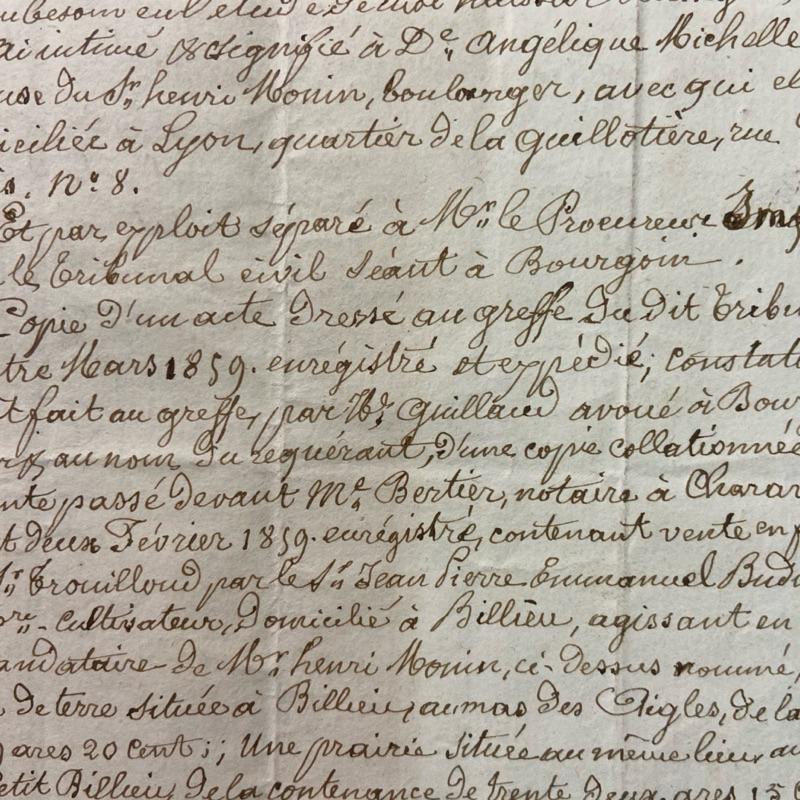 ai intimé & signifié à De. Angélique Michelle
use du Sr. henri Monin, boulanger, avec qui el
iciliée à Lyon, quartier de la guillotière, rue
is. No. 8.
Et par exploit séparé à Mr. le Procureur Imp
le Tribunal civil séant à Bourgoin.
Copie d'un acte Dressé au greffe Du dit Tribu
tre Mars 1859. enrégistré et expédié; constat
t fait au greffe, par Me. Guillaud avoué à Bour
au nom Du requérant, d'une copie collationnée
nte passé Devant Me. Bertier, notaire à Charav
t deux Février 1859. enrégistré, contenant vente en f
Sr. Trouilloud par le Sr. Jean Pierre Emmanuel Budi
pre.- cultivateur, Domicilié à Billieu, agissant en
andataire de Mr. henri Monin, ci-dessus nommé,
De terre située à Billieu, au mas des Aigles, de la
ares 20 cent; ; Une prairie située au même lieu, au
Petit Billieu, de la contenance de trente Deux ares 15 C